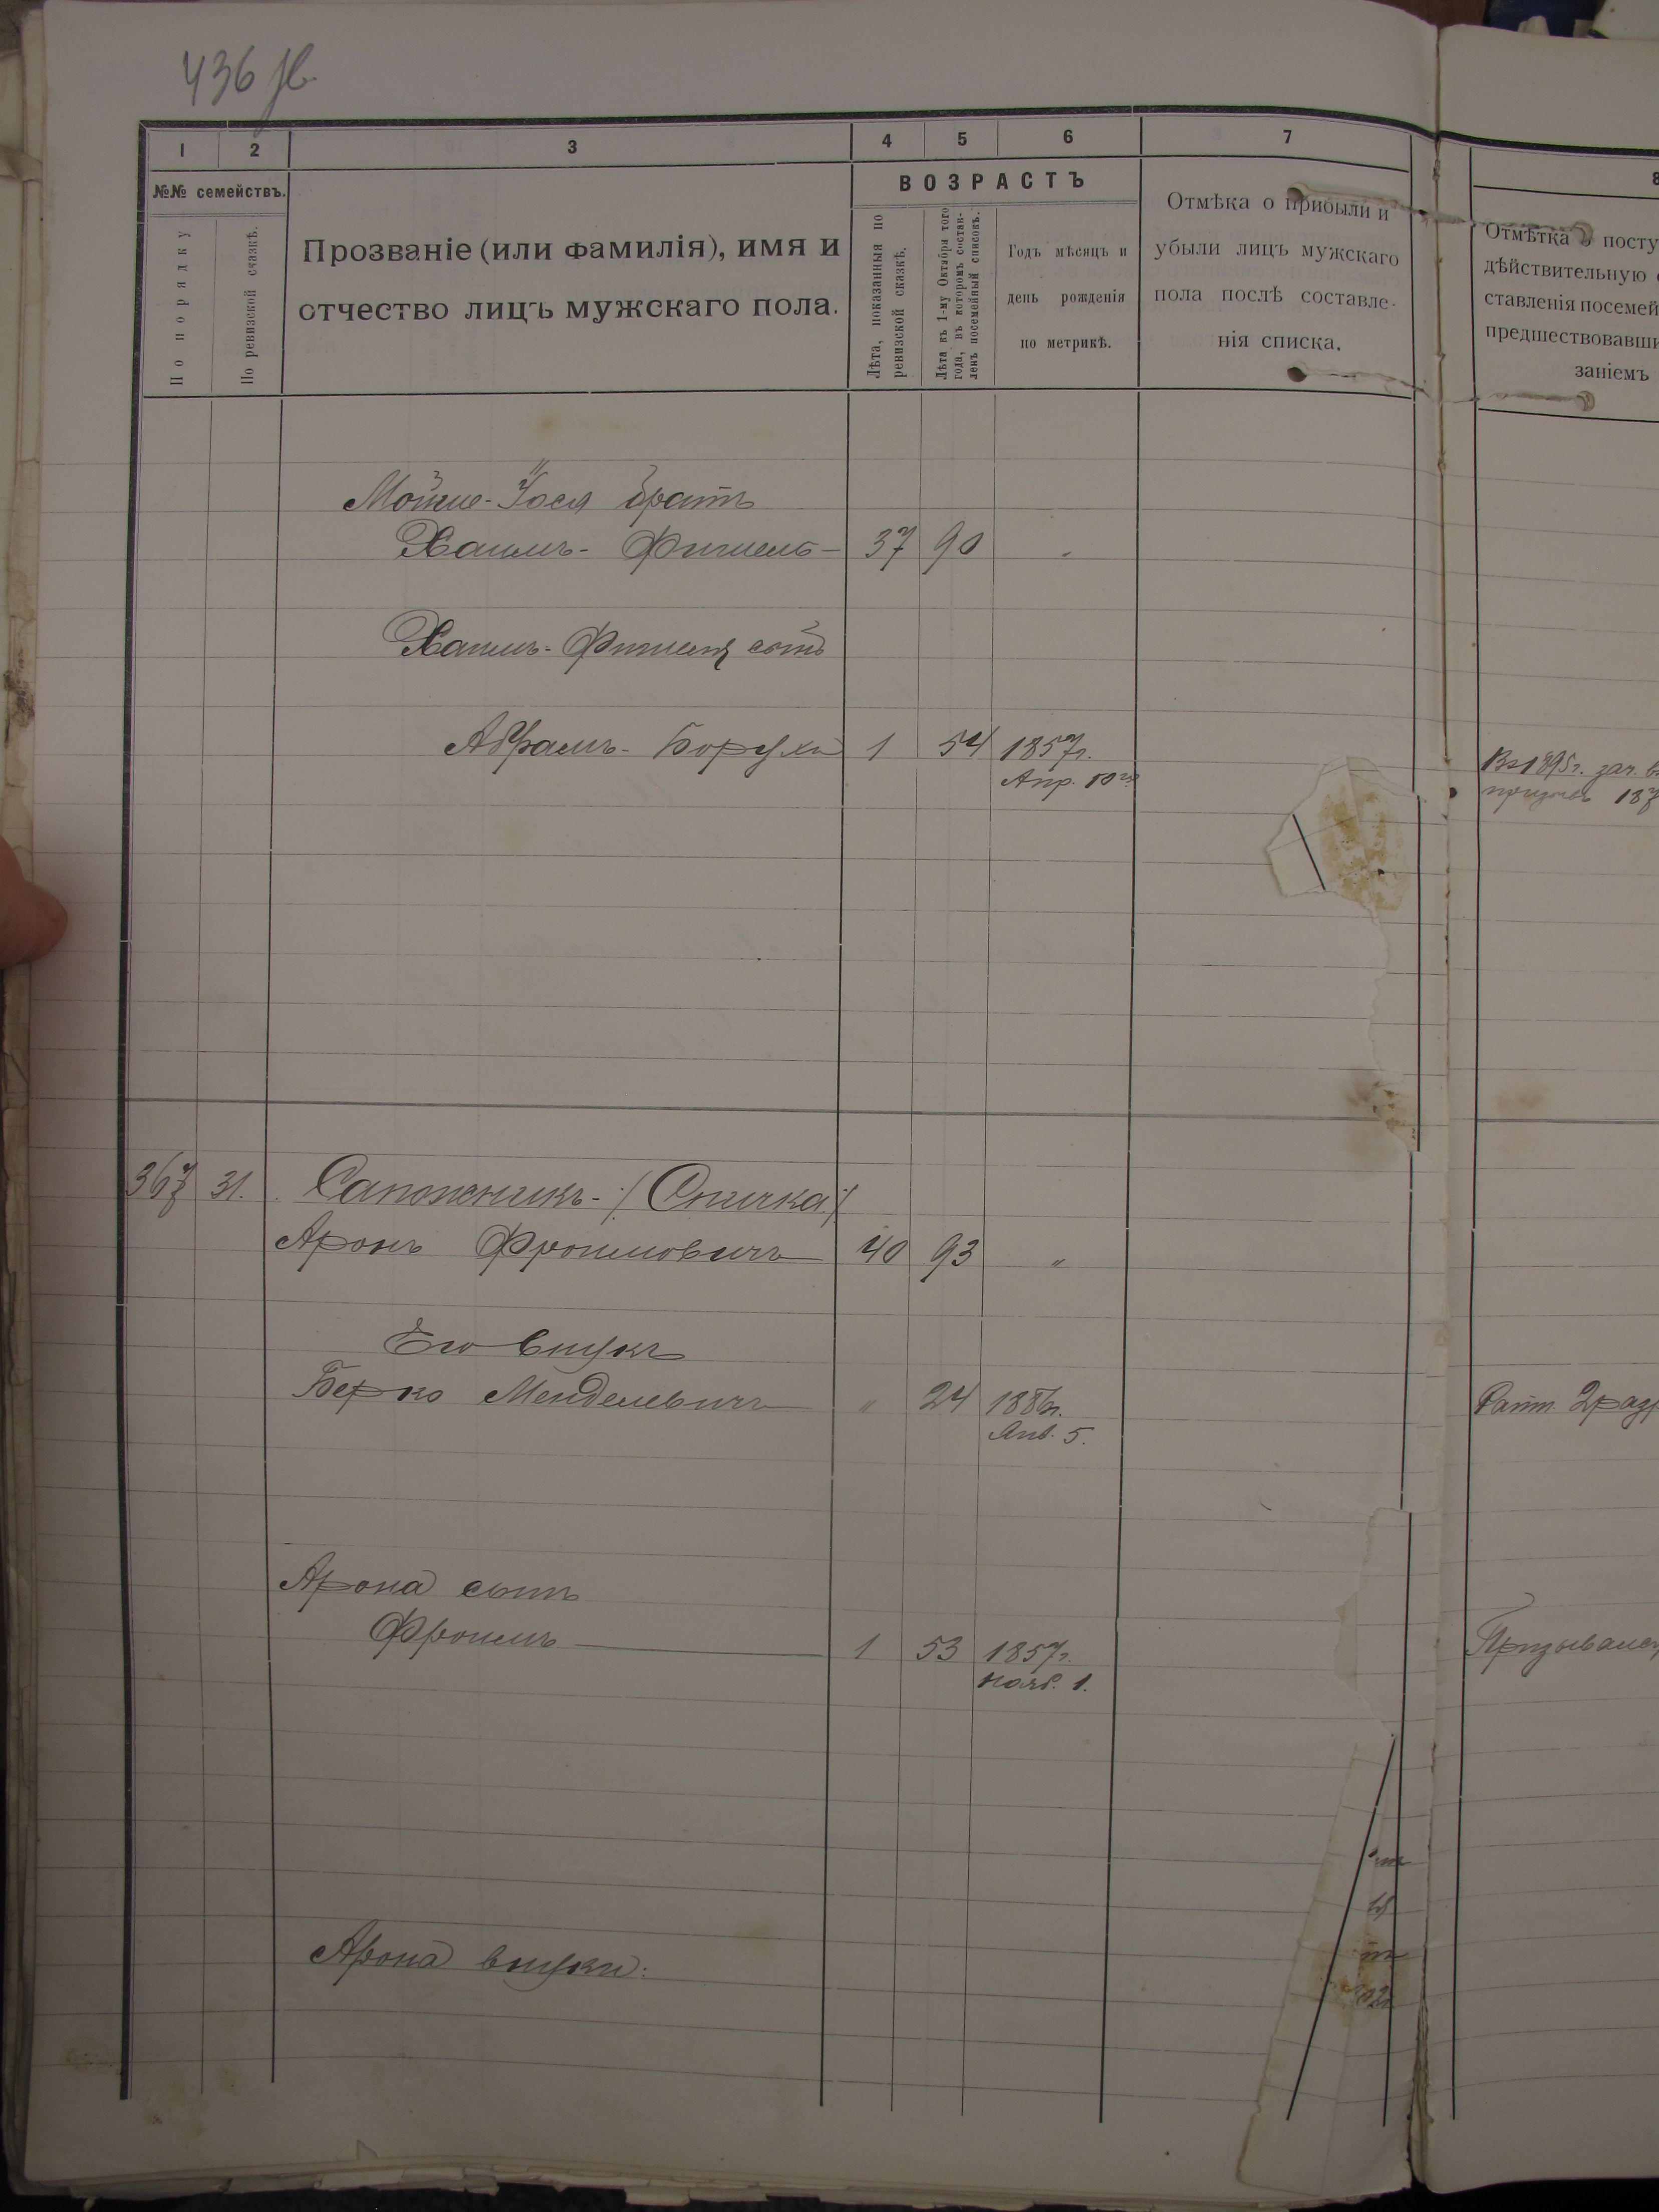 436
1 2 3 4 5 6 7
№№ семействъ.
По порядку
По ревизской сказкѣ.
Прозваніе (или фамилія), имя и
отчество лицъ мужскаго пола.
ВОЗРАСТЪ
Лѣта, показанныя по
ревизской сказкѣ.
Лѣта къ 1-му Октября того
года, въ которомъ состав-
ленъ посемейный списокъ.
Годъ мѣсяцъ и
день рожденія
по метрикѣ.
Отмѣка о прибыли и
убыли лицъ мужскаго
пола послѣ составле-
нія списка.
8
Отмѣтка о посту
дѣйствительную
ставленія посемей
предшествовавши
заніемъ
Мошко-Іося братъ
Хаимъ-Фишель 37 90 "
Хаимъ-Фишеля сынъ
Абрамъ-Борухъ 1 54 1857г.
Апр. 10го
Въ 1895г. зач. в
187
367 31. Сапожникъ-/:Спичка:/
Аронъ Фроимовичъ 40 93 "
Его внукъ
Берко Менделевичъ " 24 1886г.
Янв. 5.
Ратн. 2 раз
Арона сынъ
Фроимъ 1 53 1857г.
Нояб. 1.
Призывал
Арона внуки: